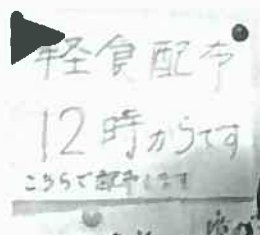 軽食配布
12時からです
こちらで配布します